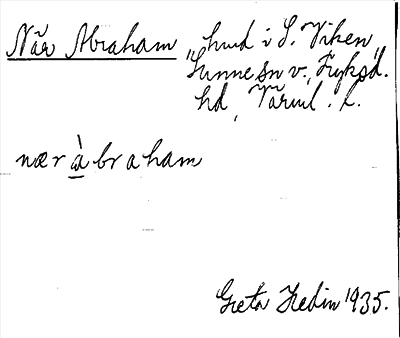 När Abraham hmd i S. Viken,
Sunne sn v., Fryksd.
hd, Värml. l.
nær àbraham
Greta Hedin 1935.